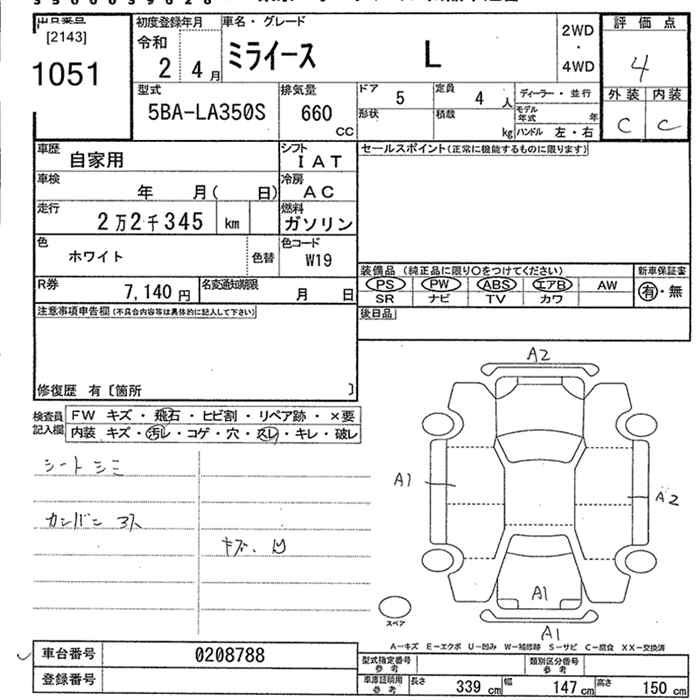 [2143]
1051
初度登録年月
令和
2 年 4月
車名・グレード
ミライース L
2WD
・
4WD
評価点
4
外装 内装
C C
型式
5BA-LA350S
排気量
660
CC
ドア
5
定員
4 人
ディーラー・並行
形状
積載
kg
モデル
年式 年
ハンドル 左・右
車歴
自家用
シフト
IAT
セールスポイント(正常に機能するものに限ります)
車検
年 月( 日)
冷房
AC
走行
2万2千345 km
燃料
ガソリン
色
ホワイト
色替
色コード
W19
装備品 (純正品に限り○をつけてください)
新車保証書
PS PW ABS エアB AW
有・無
SR ナビ TV カワ
R券
7,140円
名変通知期限
月 日
注意事項申告欄(不具合内容等は具体的に記入して下さい)
後日品
修復歴 有〔箇所 〕
検査員
記入欄
FW キズ・飛石・ヒビ割・リペア跡・×要
内装 キズ・汚レ・コゲ・穴・スレ・キレ・破レ
シート シミ
カンバン
キズ、凹
A2
A1
A2
A1
A1
スペア
A-キズ E-エクボ U-凹み W-補修跡 S-サビ C-腐食 XX-交換済
車台番号
0208788
登録番号
型式指定番号
参考
類別区分番号
参考
車庫証明用
参考
長さ 339 cm 幅 147 cm 高さ 150 cm